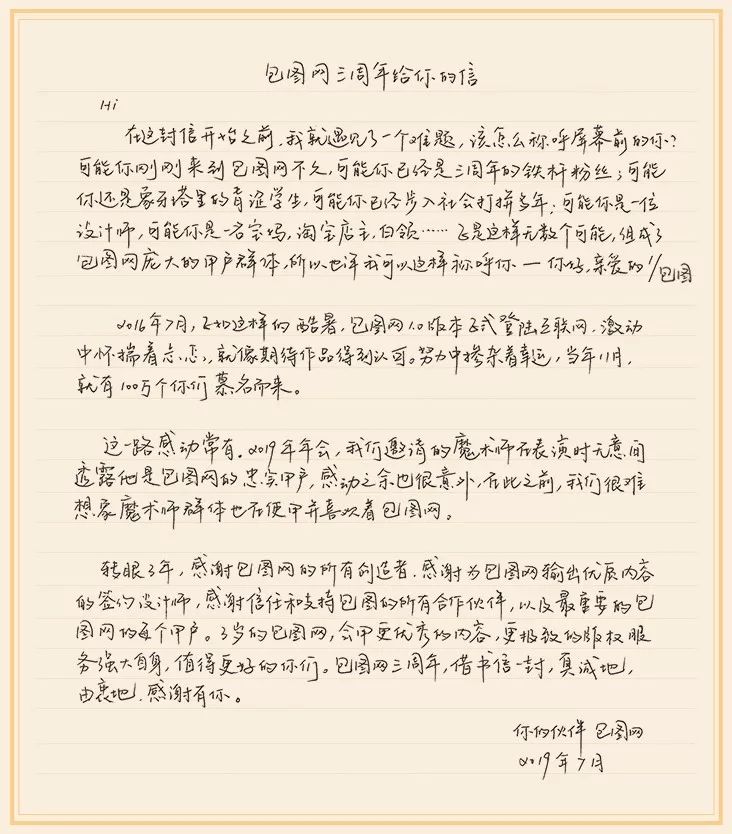 包图网三周年给你的信
Hi
在这封信开始之前,我就遇见了一个难题,该怎么称呼屏幕前的你?
可能你刚刚来到包图网不久,可能你已经是三周年的铁杆粉丝;可能
你还是象牙塔里的青涩学生,可能你已经步入社会打拼多年;可能你是一位
设计师,可能你是一名宝妈,淘宝店主,白领……正是这样无数个可能,组成了
包图网庞大的用户群体,所以也许我可以这样称呼你—你好,亲爱的1/包图
2016年7月,正如这样的酷暑,包图网1.0版本正式登陆互联网,激动
中怀揣着忐忑,就像期待作品得到认可。努力中掺杂着幸运,当年11月,
就有100万个你们慕名而来。
这一路感动常有。2019年年会,我们邀请的魔术师在表演时无意间
透露他是包图网的忠实用户,感动之余也很意外,在此之前,我们很难
想象魔术师群体也在使用并喜欢着包图网。
转眼3年,感谢包图网的所有创造者,感谢为包图网输出优质内容
的签约设计师,感谢信任和支持包图的所有合作伙伴,以及最重要的包
图网的每个用户。3岁的包图网,会用更优秀的内容,更极致的版权服
务强大自身,值得更好的你们。包图网三周年,借书信一封,真诚地,
由衷地,感谢有你。
你的伙伴 包图网
2019年7月